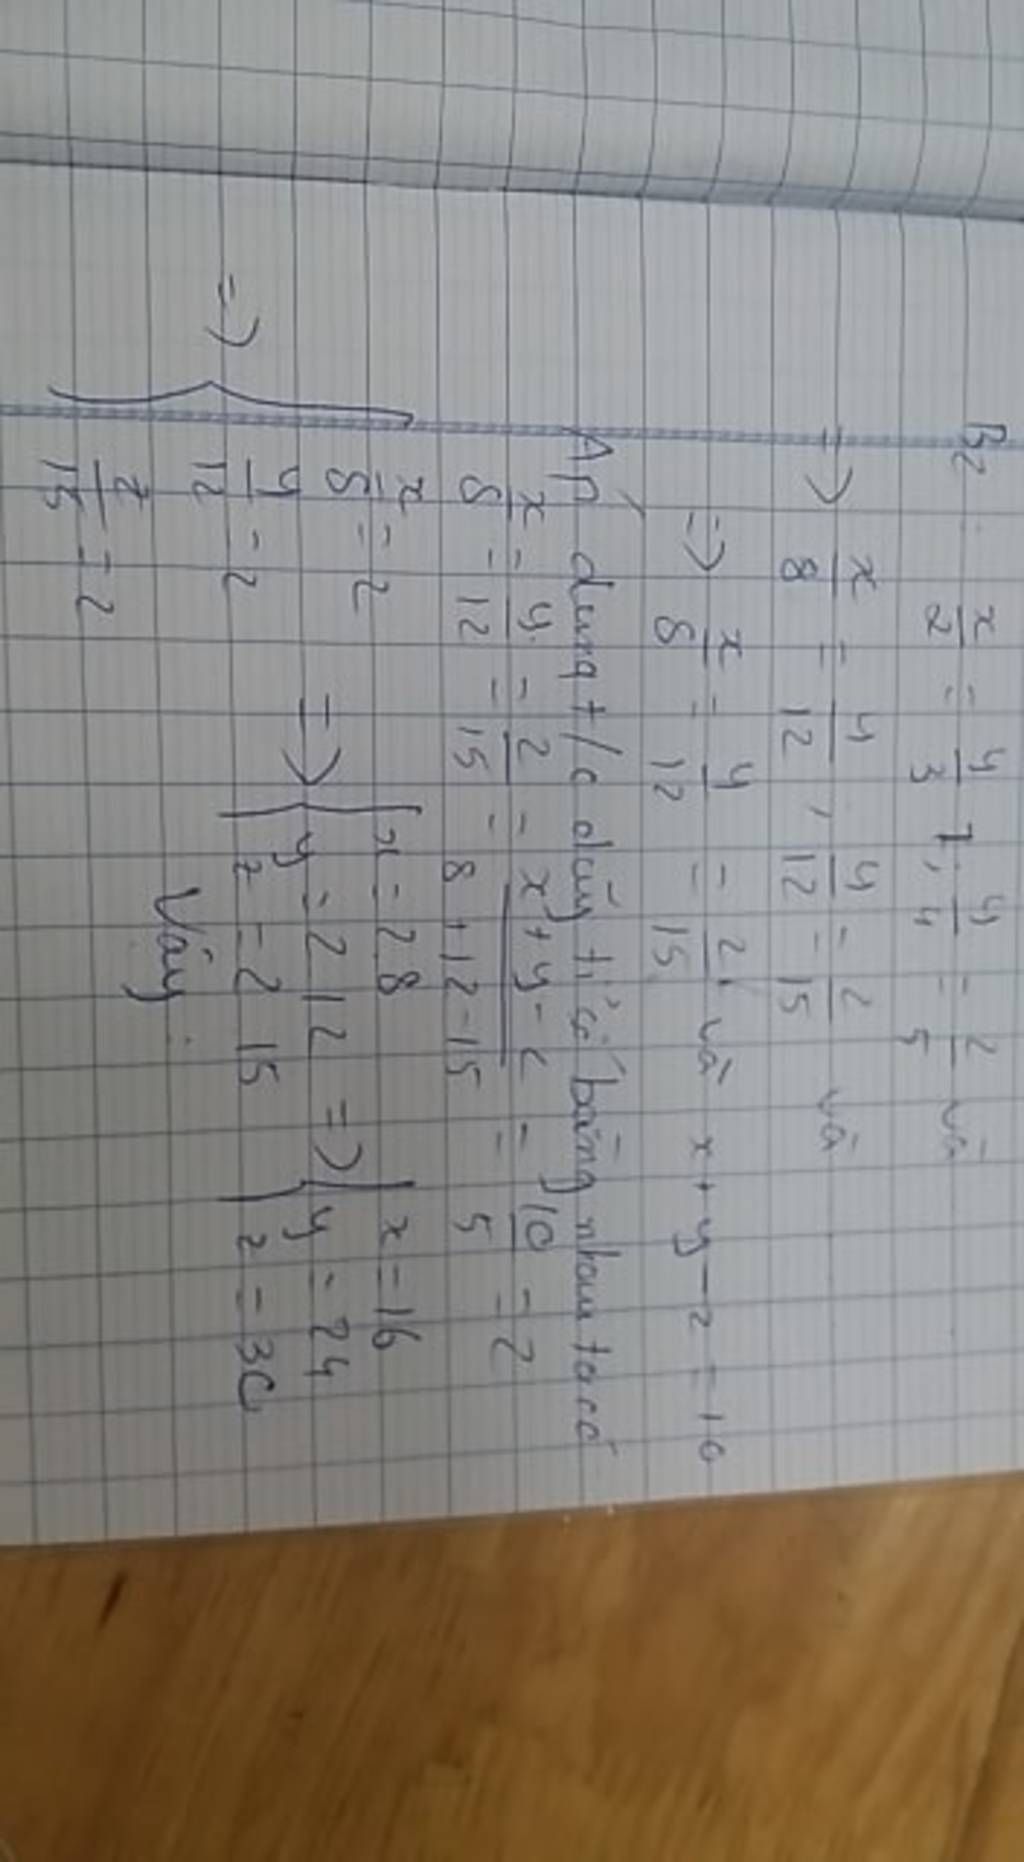 B2. x/2 = y/3 ; y/4 = z/5 và
=> x/8 = y/12 , y/12 = z/15 và
=> x/8 = y/12 = z/15 và x + y - z = 10
Áp dụng t/c dãy tỉ số bằng nhau ta có
x/8 = y/12 = z/15 = x+y-z/8+12-15 = 10/5 = 2
=> { x/8 = 2 => { x = 2 8 => { x = 16
y/12 = 2 y = 2 12 y = 24
z/15 = 2 z = 2 15 z = 30
Vậy :